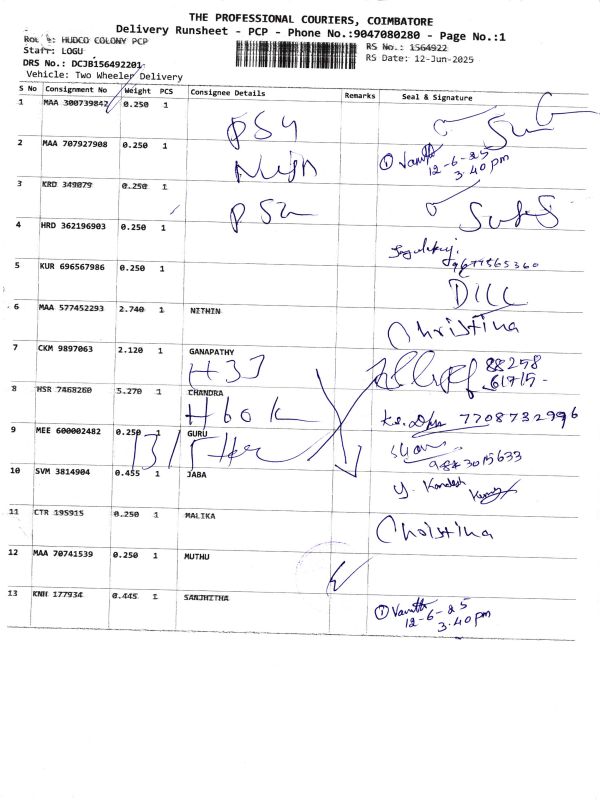 THE PROFESSIONAL COURIERS, COIMBATORE
Delivery Runsheet - PCP - Phone No.:9047080280 - Page No.:1
HUDCO COLONY PCP
RS No.: 1564922
Staff: LOGU
RS Date: 12-Jun-2025
DRS No.: DCJB156492201
Vehicle: Two Wheeler Delivery
S No Consignment No Weight PCS Consignee Details Remarks Seal & Signature
1 MAA 300739842 0.250 1
PS4
2 MAA 707927908 0.250 1
① Vanitha 12-6-25
3.40pm
3 KRD 349079 0.250 1
4 HRD 362196903 0.250 1
5 KUR 696567986 0.250 1
6 MAA 577452293 2.740 1 NITHIN
Christina
7 CKM 9897063 2.120 1 GANAPATHY
H33
88258
61715
8 HSR 7468260 5.270 1 CHANDRA
7708732996
9 MEE 600002482 0.250 1 GURU
10 SVM 3814904 0.455 1 JABA
11 CTR 195915 0.250 1 MALIKA
Christina
12 MAA 70741539 0.250 1 MUTHU
13 KNH 177934 0.445 1 SANJHITHA
① Vanitha
12-6-25
3.40pm